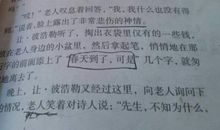 吗?"老人叹息着回答:"我,我什么也没有得
说着,脸上露出了非常悲伤的神情。
让·彼浩勒听了,掏出衣袋里仅有的一些钱,
放在老人身边的小盆里,然后拿起笔,悄悄地在那
字的前面添上了"春天到了,可是"几个字,就匆
地离去了。
晚上,让·彼浩勒又经过这里,向老人询问下
的情况,老人笑着对诗人说:"先生,不知为什么,